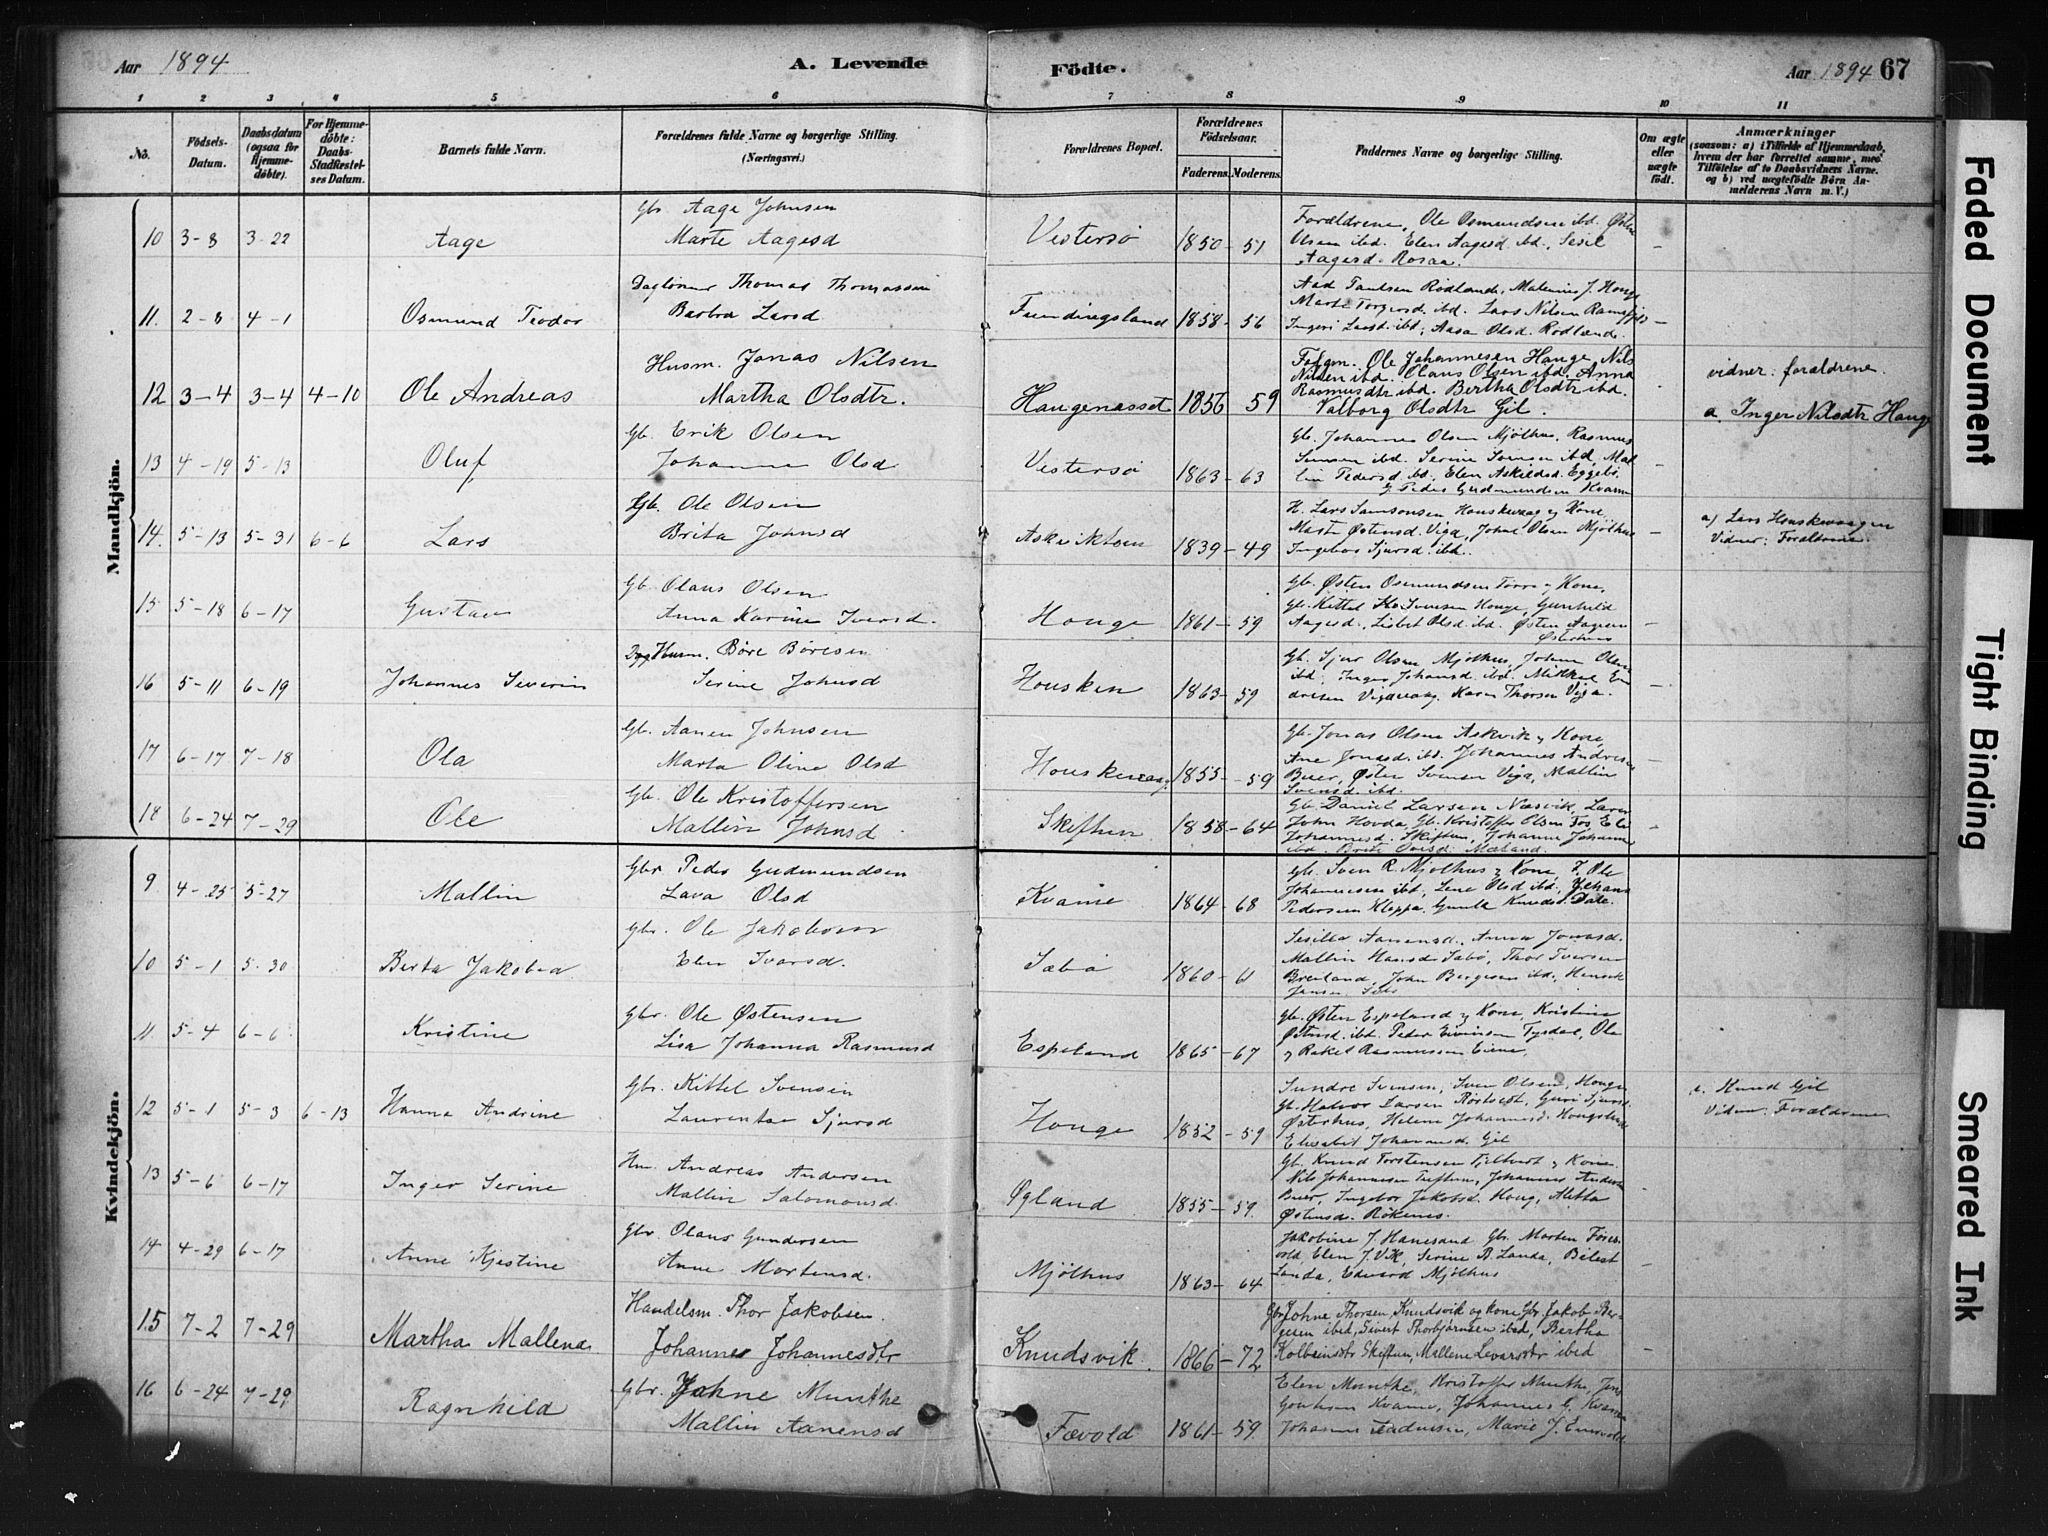 Aar 1894 A. Levende Födte. Aar 1894 67
1 2 3 4 5 6 7 8 9 10 11
No.
Födsels-Datum.
Daabsdatum (ogsaa for Hjemme-döbte).
For Hjemme-döbte: Daabs-Stadfæstel-ses Datum.
Barnets fulde Navn.
Forældrenes fulde Navne og borgerlige Stilling. (Næringsvei.)
Forældrenes Bopæl.
Forældrenes Födselsaar.
Faderens. Moderens.
Faddernes Navne og borgerlige Stilling.
Om ægte eller uægte födt.
Anmærkninger
(saasom: a) i Tilfælde af Hjemmedaab, hvem der har forrettet samme, med Tilföielse af to Daabsvidners Navne, og b) ved uægtefödte Börn An-melderens Navn m. V.)
Mandkjön.
10 3-8 3-22 Aage
Gbr Aage Johnsen
Marte Aagesd
Vestersø 1850-51
Forældrene, Ole Osmundsen ibd. Østen
Olsen ibd. Elen Aagesd. ibd., Sesil
Aagesd. Rosaa.
11. 2-8 4-1 Osmund Teodor
Daglønner Thomas Thomassen
Barbra Larsd
1858-56
Aad Paulsen Rødland, Malenius J. Houge
Marte Torgersd. ibd. Lars Nilsen
Ingeri Larsd. ibd., Aasa Olsd. Rødland.
12 3-4 3-4 4-10 Ole Andreas
Husm. Jonas Nilsen
Martha Olsdtr.
Haugenæsset 1856 59
Ole Johannesen Hauge, Nils
Nilsen ibd. Olaus Olsen ibd., Anna
Rasmusdtr ibd. Bertha Olsdtr ibd.
Valborg Olsdtr Gil.
vidner: forældrene.
a. Inger Nilsdtr Hauge
13 4-19 5-13 Oluf
Gb. Erik Olsen
Johanne Olsd
Vestersø 1863-63
Gb. Johannes Olsen Mjølhus, Rasmus
Simsen ibd. Serine Svensen ibd, Mal-
lin Pedersd. ibd, Elen Askildsd. Eggebø
og Peder Gudmundsen Kvame
14. 5-13 5-31 6-6 Lars
Gb. Ole Olsen
Brita Johnsd
Askviktun 1839-49
H. Lars Samsonsen Houskevaag og Kone,
Marte Østensd. Viga, John Olsen Mjølhus
Ingebor Sjursd. ibd.
a) Lars Houskevaagen
Vidner: Forældrene
15 5-18 6-17 Gustav
Gb. Olaus Olsen
Anna Karine Iversd.
Houge 1861-59
Gb. Østen Osmundsen Torre og Kone,
Gb. Kittel Svensen Houge, Gunhild
Aagesd., Lisbet Olsd. ibd. Østen Aagesen
Østerhus
16 5-11 6-19 Johannes Severin
Husm. Børe Børesen
Serine Johnsd
Housken 1863-59
Gb. Sjur Olsen Mjølhus, John Olsen
ibd. Inger Johansd. ibd. Mikkel En-
dresen Vigavaag, Karen Thorsen Viga.
17 6-17 7-18 Ola
Gb. Aanen Johnsen
Marta Oline Olsd
Houskevaag 1855-59
Gb. Jonas Olsen Askvik og Kone,
Ane Jonasd. ibd. Johannes Andresen
Buer, Østen Svensen Viga, Mallin
Svensd. ibd.
18 6-24 7-29 Ole
Gb. Ole Kristoffersen
Mallin Johnsd
Skiftun 1858-64
Gb. Daniel Larsen Næsvik, Lars
John Hovda, Gb. Kristoffer Olsen Fos, Eli
Johannesd. Skiftun, Johanna Johanne
ibd. Brite Mæland.
Kvindekjön.
9 4-25 5-27 Mallin
Gbr Peder Gudmundsen
Lava Olsd
Kvame 1864-68
Gb. Sven R. Mjølhus og Kone, Ole
Johannesen ibd. Lene Olsd ibd, Johans
Pedersen Kleppa, Gunla Knudsd. Dale.
10 5-1 5-30 Berta Jakobea
Gbr. Ole Jakobsen
Elen Ivarsd.
Sæbø 1860-61
Sesilla Aanensd., Anna Jonasd.
Mallin Hansd Sæbø, Thor Iversen
Breiland, John Børgesen ibd, Henrik
Jansen
11 5-4 6-6 Kristine
Gbr. Ole Østensen
Lisa Johanna Rasmusd
Espeland 1865-67
Gb. Østen Espeland og Kone, Kristine
Østensd. ibd. Peder Eivinsen Tysdal, Ole
og Rakel Rasmussen Eiene,
12 5-1 5-3 6-13 Hanna Andrine
Gbr. Kittel Svensen
Laurentse Sjursd
Houge 1852-59
Sundre Svensen, Sven Olsen, Houge
Gb. Halvor Larsen Rørtvedt, Guri Sjursd.
Østerhus, Helene Johannesd.
Elisabet Johannesd. Gil
a. Knud Gil
Vidner: Forældrene
13 5-6 6-17 Inger Serine
Hm. Andreas Andersen
Mallin Salomonsd.
Øgland 1855-59.
Gb. Knud Torstensen og Kone.
Nils Johannesen Johannes Anders
Buer, Ingebor Jakobsd. Houg, Aletta
Østensd. Røkenes.
14 4-29 6-17 Anne Kjestine
Gbr. Olaus Gundersen
Anne Mortensd.
Mjølhus 1863-64
Jakobine J. Hanesand Gbr. Morten Føre-
vold Elen J. Vik, Serine B. Landa, Bilest
Landa, Edvard Mjølhus
15 7-2 7-29 Martha Mallena
Handelsm. Thor Jakobsen.
Johanne Johannesdtr
Knudsvik. 1866-72
Gbr Johne Thorsen Knudsvik og kone Gbr. Jakob Bør-
gesen ibed, Sivert Thorbjørnsen ibed, Bertha
Kolbeinsdtr Skiftun, Mallene Levarsdtr ibed
16 6-24 7-29 Ragnhild
Gbr. Johne Munthe
Mallin Aanensd
Fævold 1861-59
Elen Munthe, Kristoffer Munthe, Jens
Kvame, Johannes G. Kvame
Johanne Marie J.
Faded Document
Tight Binding
Smeared Ink